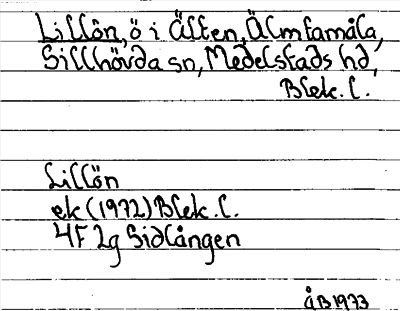 Lillön, ö i Älten, Älmtamåla,
Sillhövda sn, Medelstads hd,
Blek. l.
Lillön
ek (1972) Blek. l.
4F 2g Sidlången
ÅB 1973